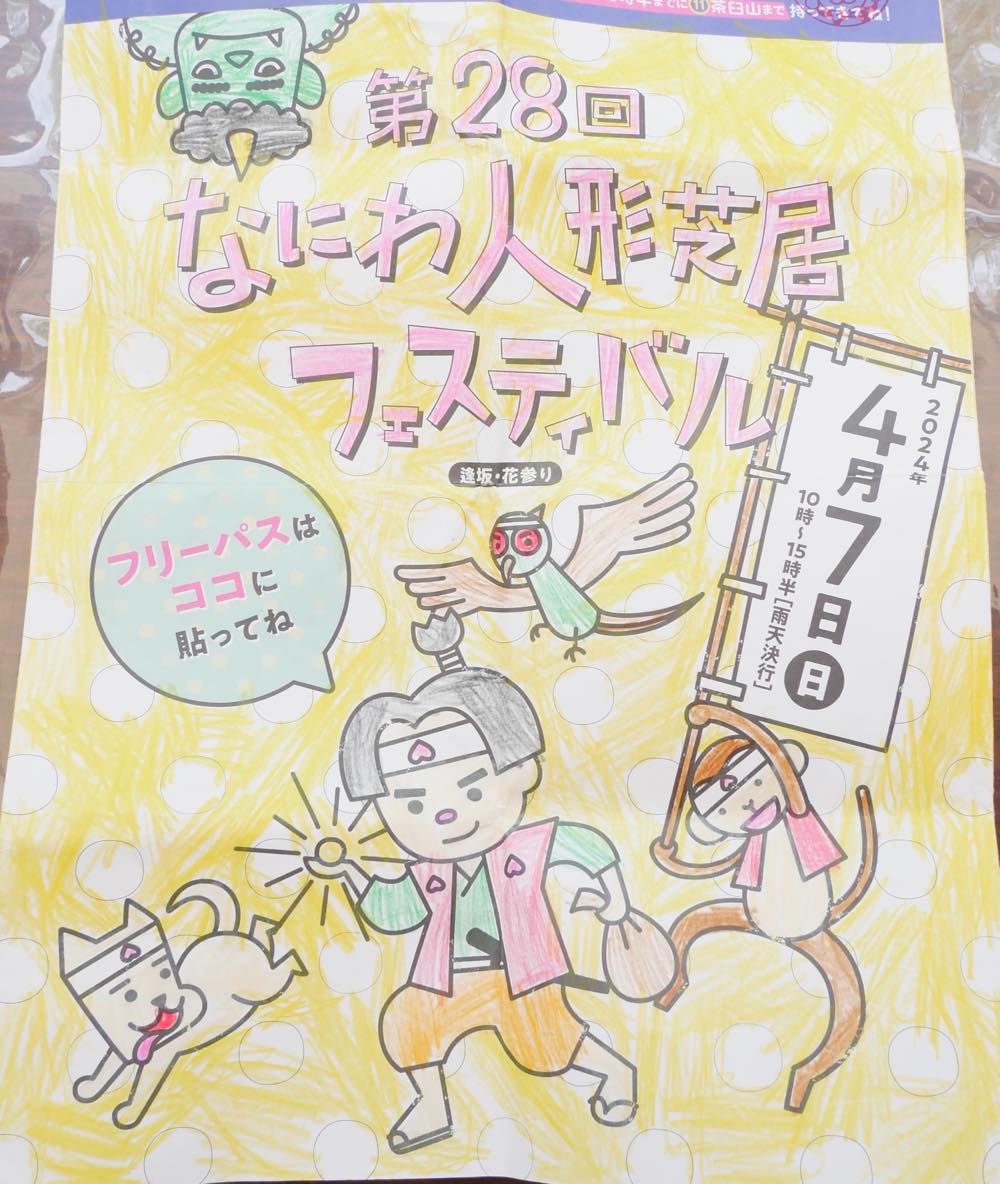 までに⑪茶臼山まで 持ってきてね!
第28回
なにわ人形芝居
フェスティバル
逢坂・花参り
2024年
4月7日日
10時~15時半[雨天決行]
フリーパスは
ココに
貼ってね